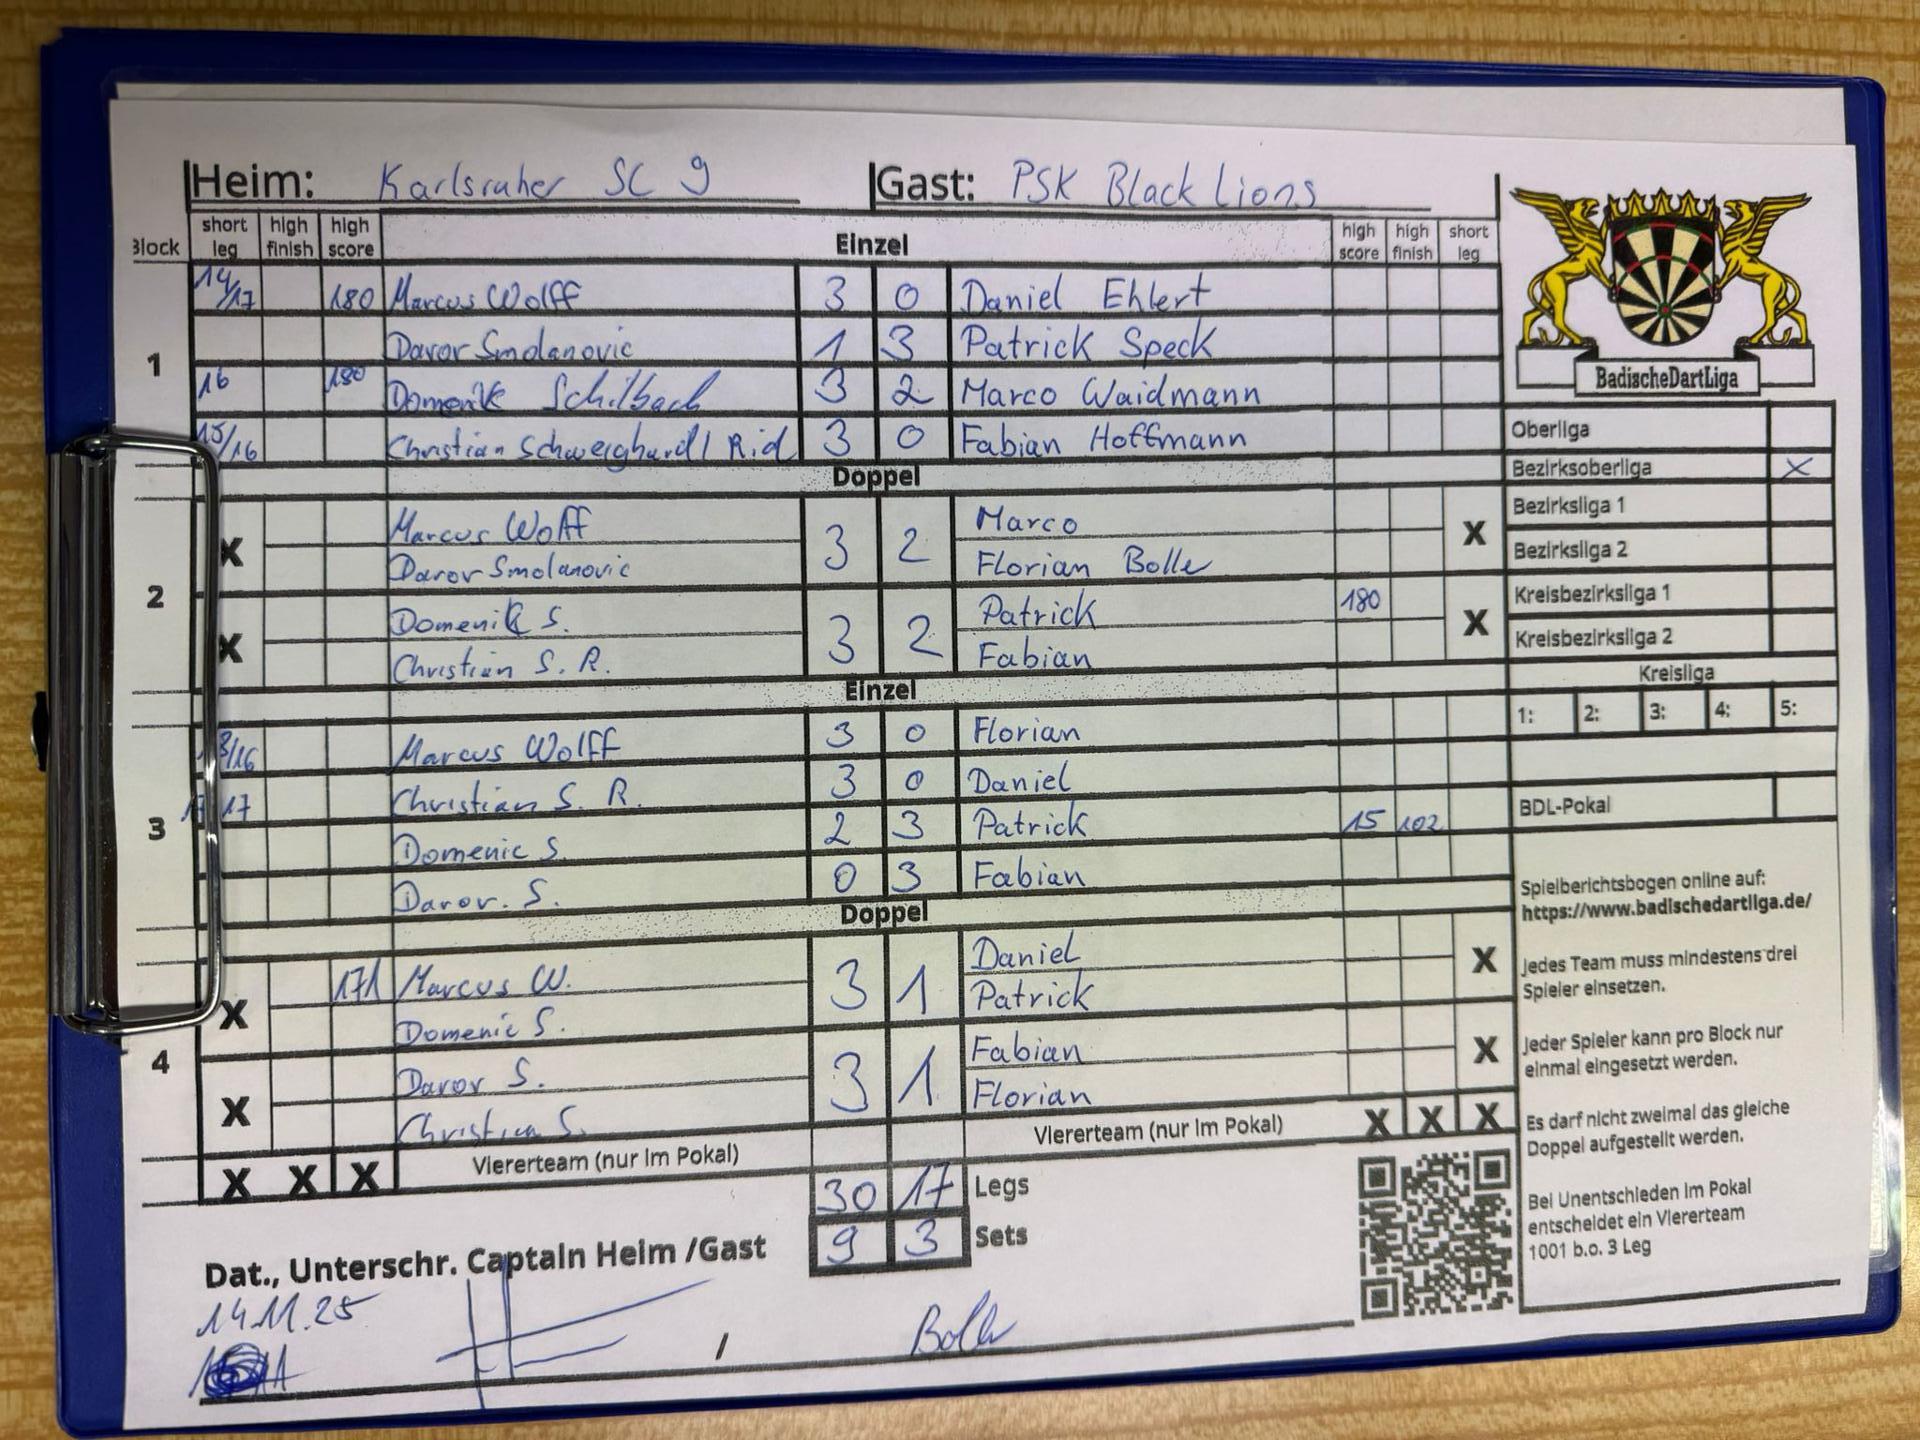 Heim: Karlsruher SC 9 Gast: PSK Black Lions
Block short leg high finish high score Einzel high score high finish short leg
1
14/17 180 Marcus Wolff 3 0 Daniel Ehlert
Davor Smolanovic 1 3 Patrick Speck
16 180 Domenik Schilbach 3 2 Marco Waidmann
15/16 Christian Schweighardl Rid 3 0 Fabian Hoffmann
Doppel
2
X Marcus Wolff 3 2 Marco X
Davor Smolanovic Florian Bolle
X Domenik S. 3 2 Patrick 180 X
Christian S. R. Fabian
Einzel
3
8/16 Marcus Wolff 3 0 Florian
17 Christian S. R. 3 0 Daniel
Domenic S. 2 3 Patrick 15 102
Davor. S. 0 3 Fabian
Doppel
4
X 171 Marcus W. 3 1 Daniel X
Domenic S. Patrick
X Davor S. 3 1 Fabian X
Christian S. Florian
X X X Viererteam (nur im Pokal) Viererteam (nur im Pokal) X X X
30 17 Legs
9 3 Sets
Dat., Unterschr. Captain Heim /Gast
14.11.25
/ Bolle
BadischeDartLiga
Oberliga
Bezirksoberliga X
Bezirksliga 1
Bezirksliga 2
Kreisbezirksliga 1
Kreisbezirksliga 2
Kreisliga
1: 2: 3: 4: 5:
BDL-Pokal
Spielberichtsbogen online auf:
https://www.badischedartliga.de/
Jedes Team muss mindestens drei
Spieler einsetzen.
Jeder Spieler kann pro Block nur
einmal eingesetzt werden.
Es darf nicht zweimal das gleiche
Doppel aufgestellt werden.
Bei Unentschieden im Pokal
entscheidet ein Viererteam
1001 b.o. 3 Leg